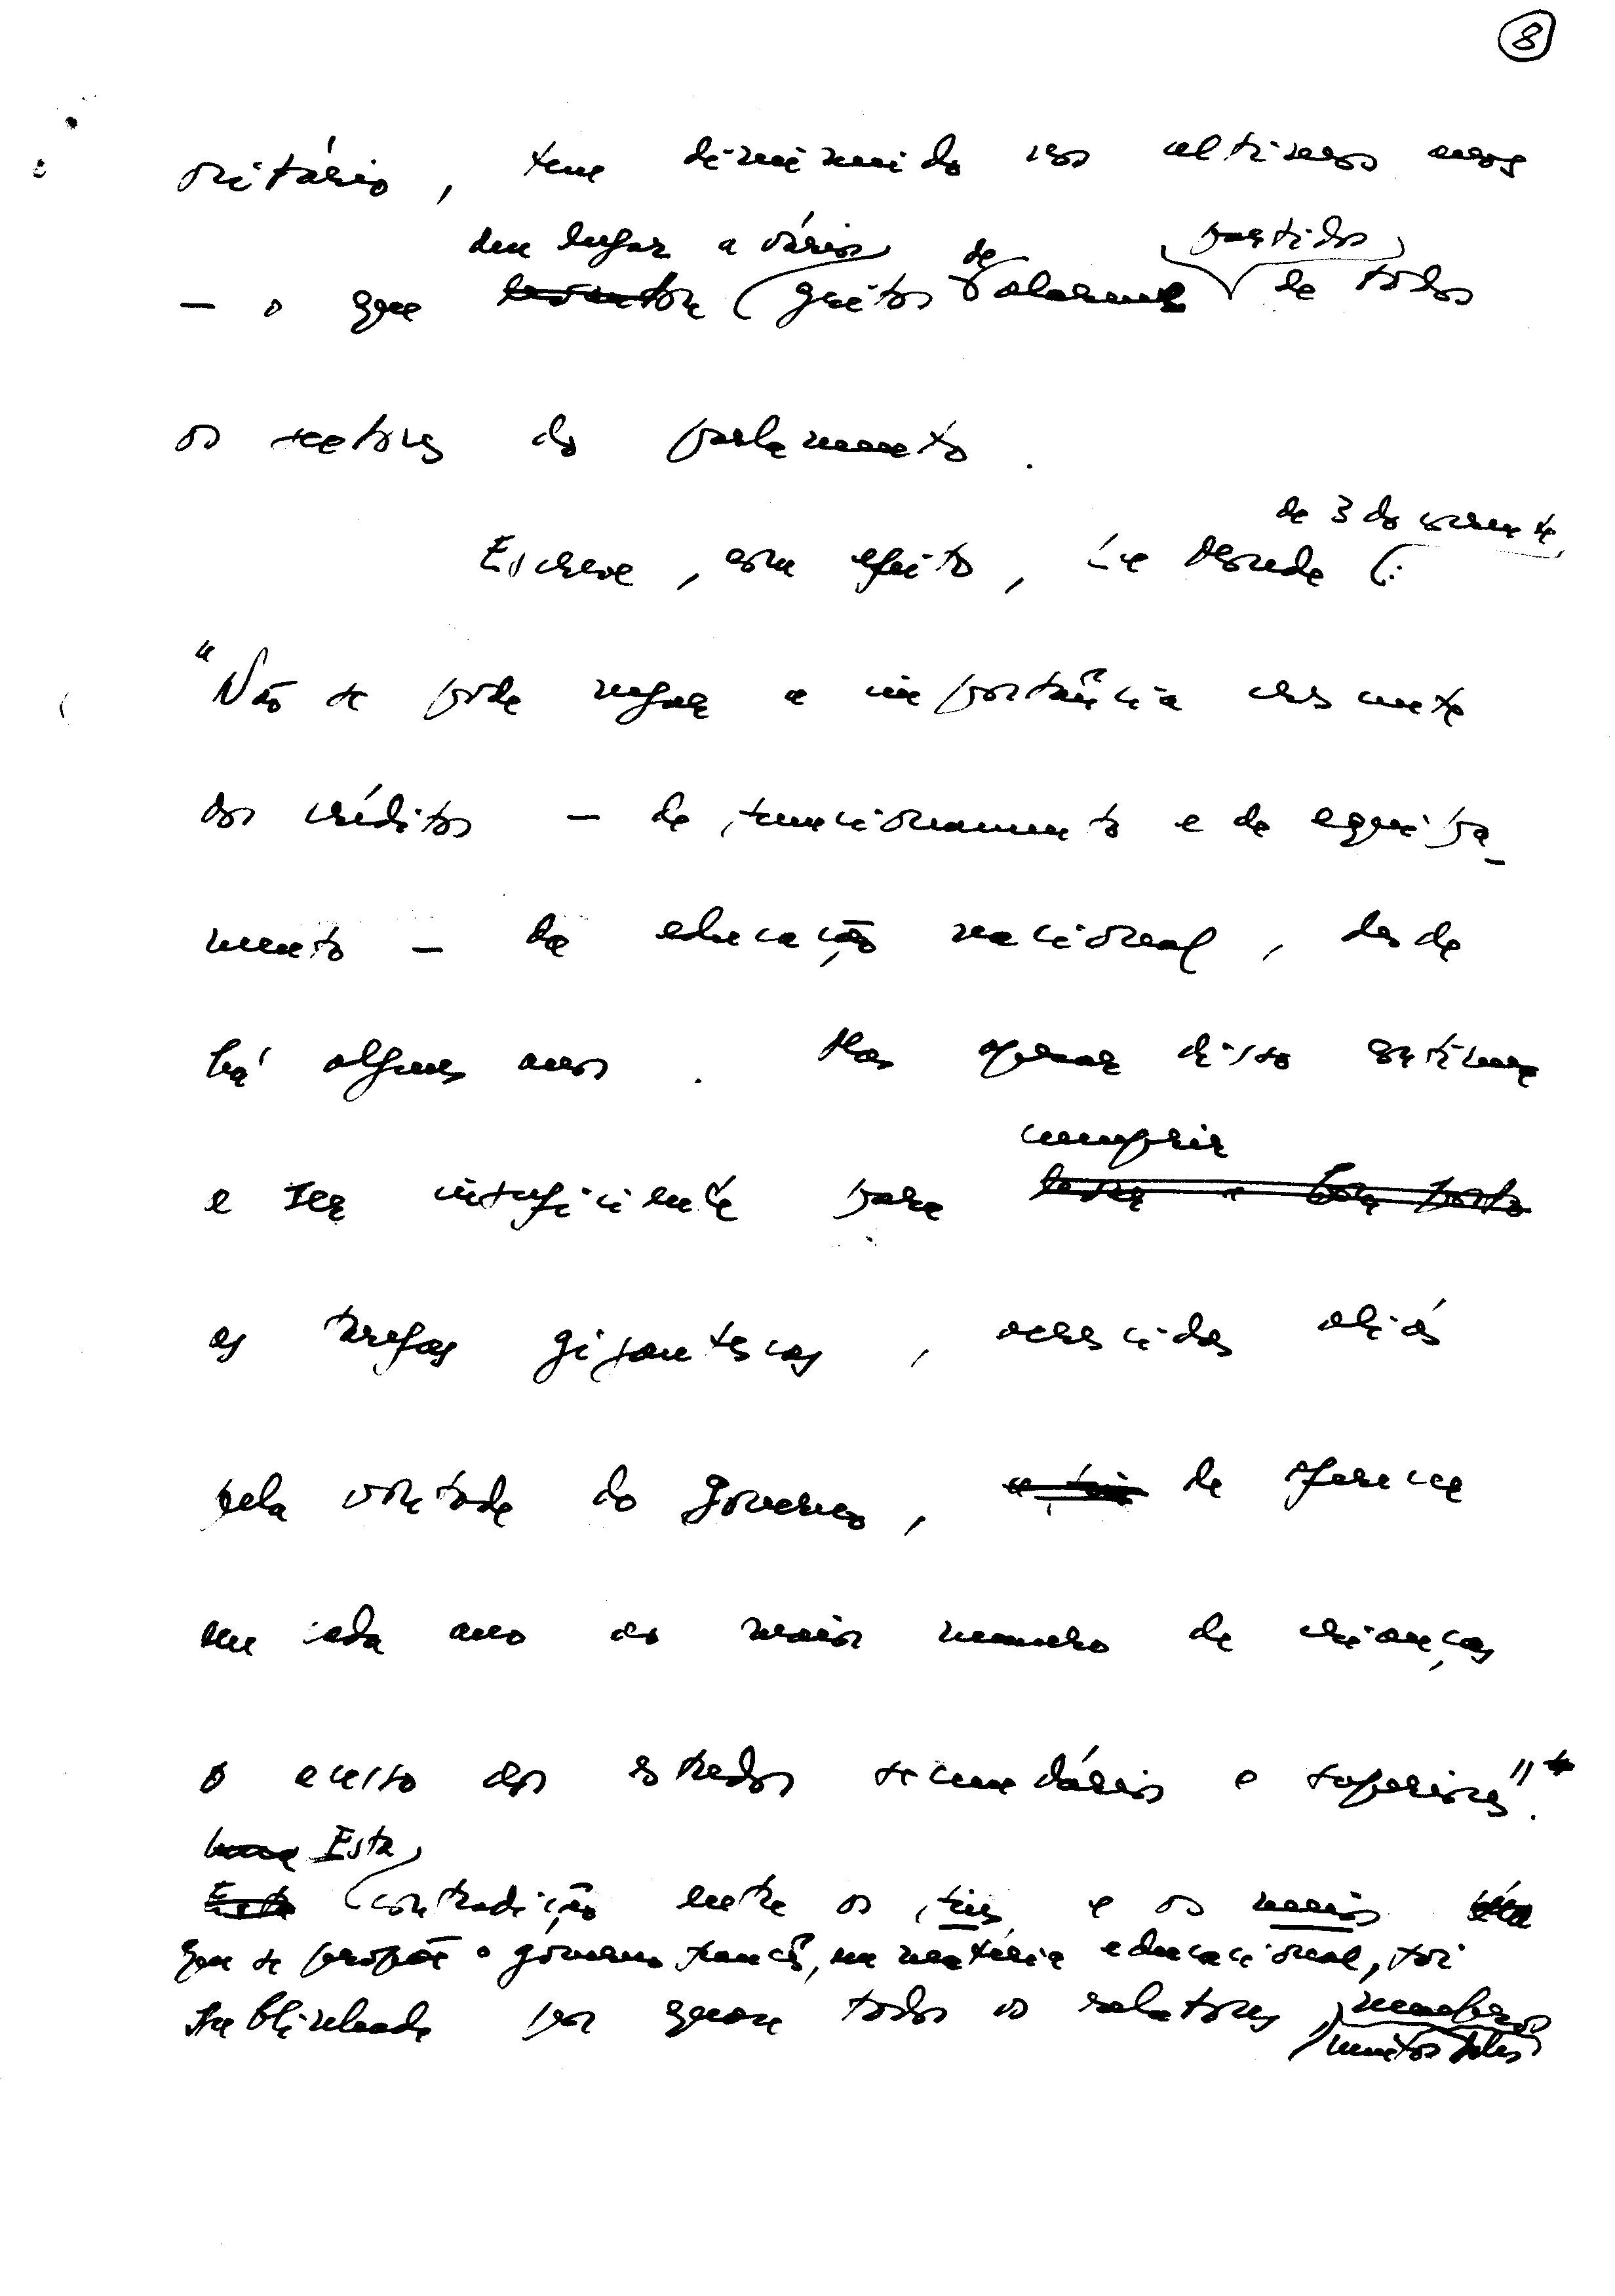 8
oritário, tem diminuido nos ultimos anos
deu lugar a vários de partidos
— o que gritos alarme de todos
os sectores do parlamento.
de 3 do corrente
Escreve, com efeito, Le Monde :
"Não se pode negar a importância crescente
dos créditos — de funcionamento e de equipa-
mento — da educação nacional, desde
há alguns anos. Mas apesar disso continuam
a ser insuficientes para
cumprir
as tarefas gigantescas, acrescidas aliás
pela vontade do governo, de oferecer
em cada ano ao maior numero de crianças
o acesso aos estudos secundários e superiores".
Esta
contradição entre os fins e os meios
que se propõe o governo francês, em matéria educacional, foi
sublinhada por quase todos os relatores,
muitos deles